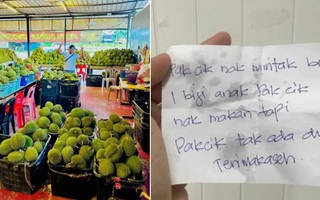 Pak cik nak mintak
1 biji anak Pak cik
nak makan tapi
Pakcik tak ada
Terimakaseh.